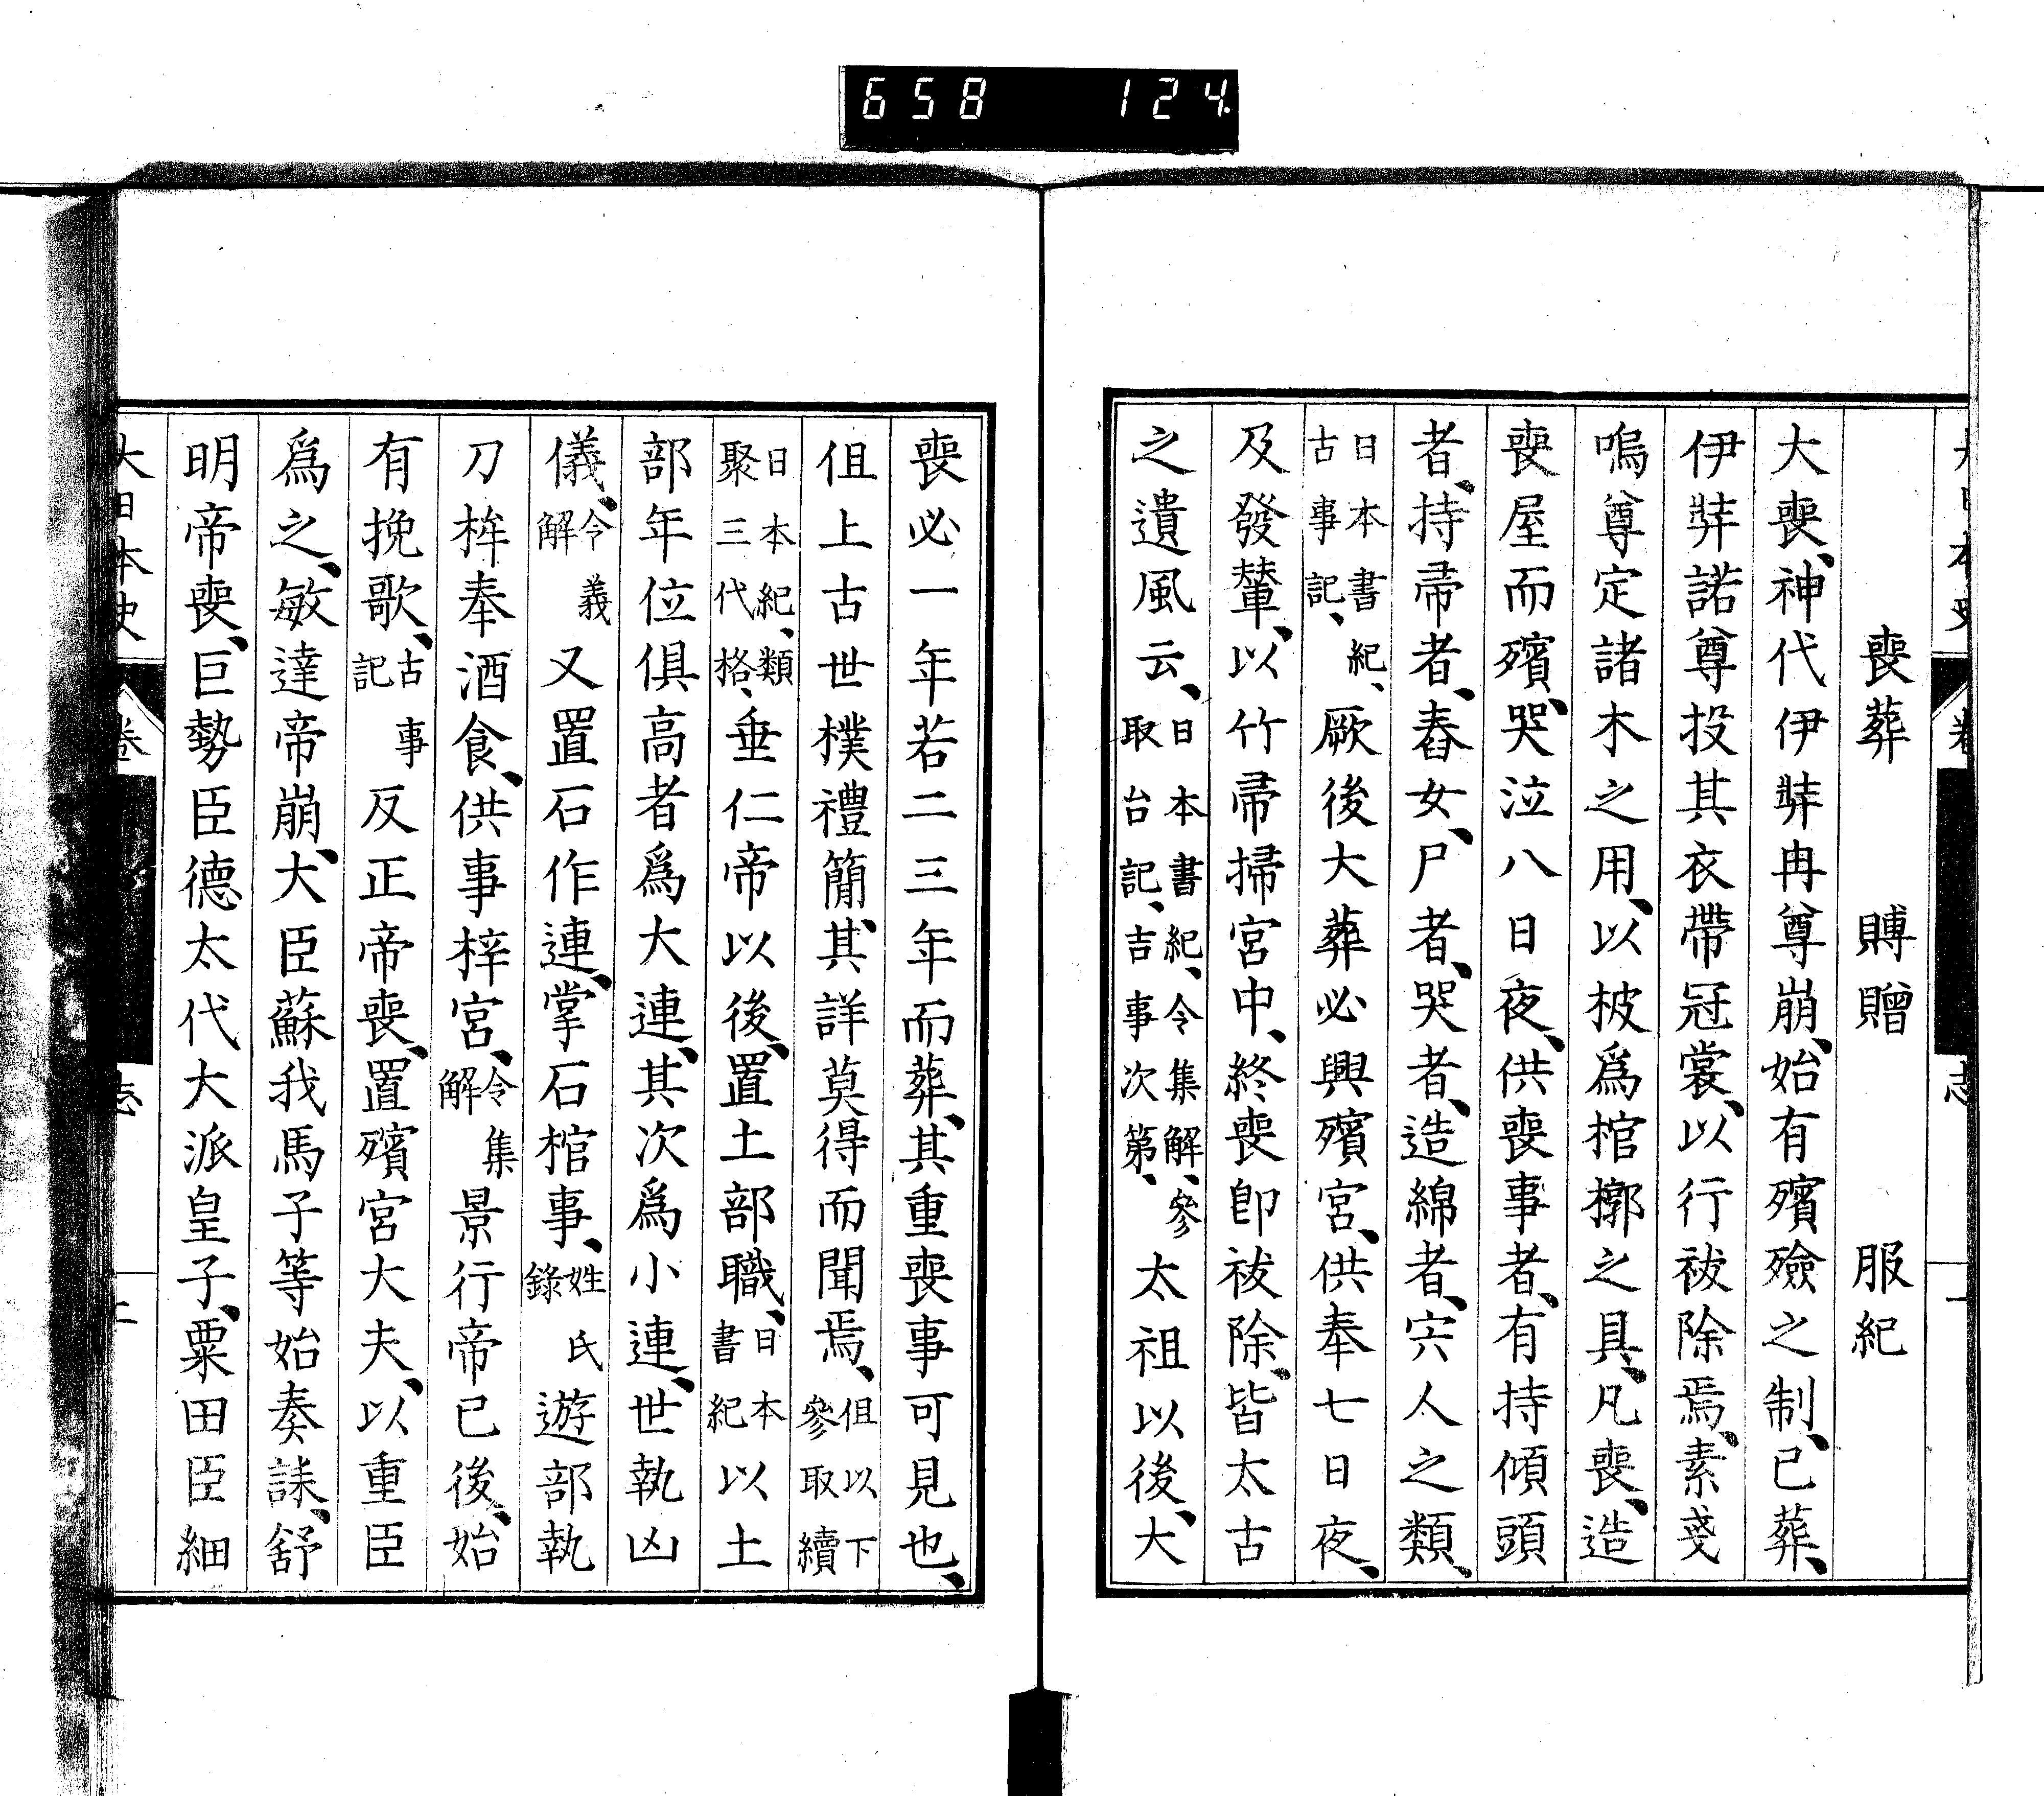 658 124
喪葬 賻贈 服紀
大喪、神代伊弉冉尊崩、始有殯殮之制、已葬、
伊弉諾尊投其衣帶冠裳、以行祓除焉、素戔
嗚尊定諸木之用、以柀爲棺槨之具、凡喪、造
喪屋而殯、哭泣八日夜、供喪事者、有持傾頭
者、持帚者、舂女、尸者、哭者、造綿者、宍人之類、
日本書紀、古事記、厥後大葬必興殯宮、供奉七日夜、
及發輦、以竹帚掃宮中、終喪卽祓除、皆太古
之遺風云、日本書紀、令集解、參取台記、吉事次第、太祖以後、大
喪必一年若二三年而葬、其重喪事可見也、
但上古世樸禮簡、其詳莫得而聞焉、但以下參取續
日本紀、類聚三代格、垂仁帝以後、置土部職、日本書紀以土
部年位俱高者爲大連、其次爲小連、世執凶
儀、令義解又置石作連、掌石棺事、姓氏錄遊部執
刀桙奉酒食、供事梓宮、令集解景行帝已後、始
有挽歌、古事記反正帝喪、置殯宮大夫、以重臣
爲之、敏達帝崩、大臣蘇我馬子等始奏誄、舒
明帝喪、巨勢臣德太代大派皇子、粟田臣細
大日本史 卷 志